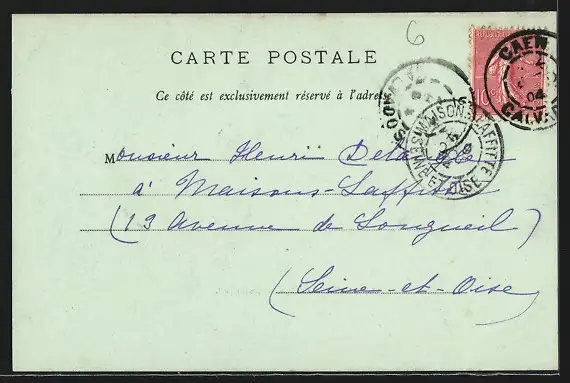 6
CARTE POSTALE
Ce côté est exclusivement réservé à l'adresse
CAEN
04
CALVADOS
10
MAISONS-LAFFITTE
SEINE-ET-OISE
Monsieur Henri
à Maisons-Laffitte
(19 Avenue de Longueil)
(Seine-et-Oise)